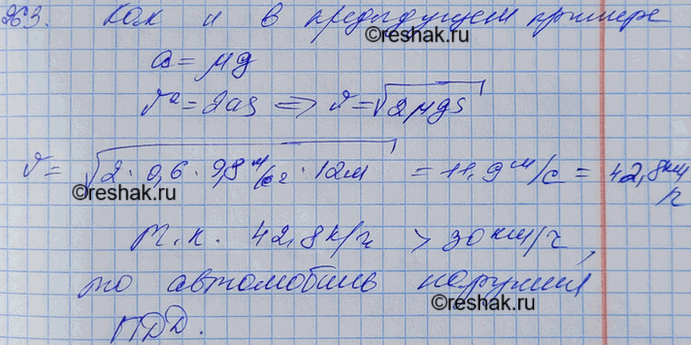 263. Как и в предыдущем примере
a = μg
v² = 2as ⟹ v = √2μgs
v = √2 · 0,6 · 9,8 м/с² · 12м = 11,9 м/с = 42,8 км/ч
Т.к. 42,8 к/ч > 30 км/ч,
то автомобиль нарушил
ПДД.
©reshak.ru
©reshak.ru
©reshak.ru
©reshak.ru